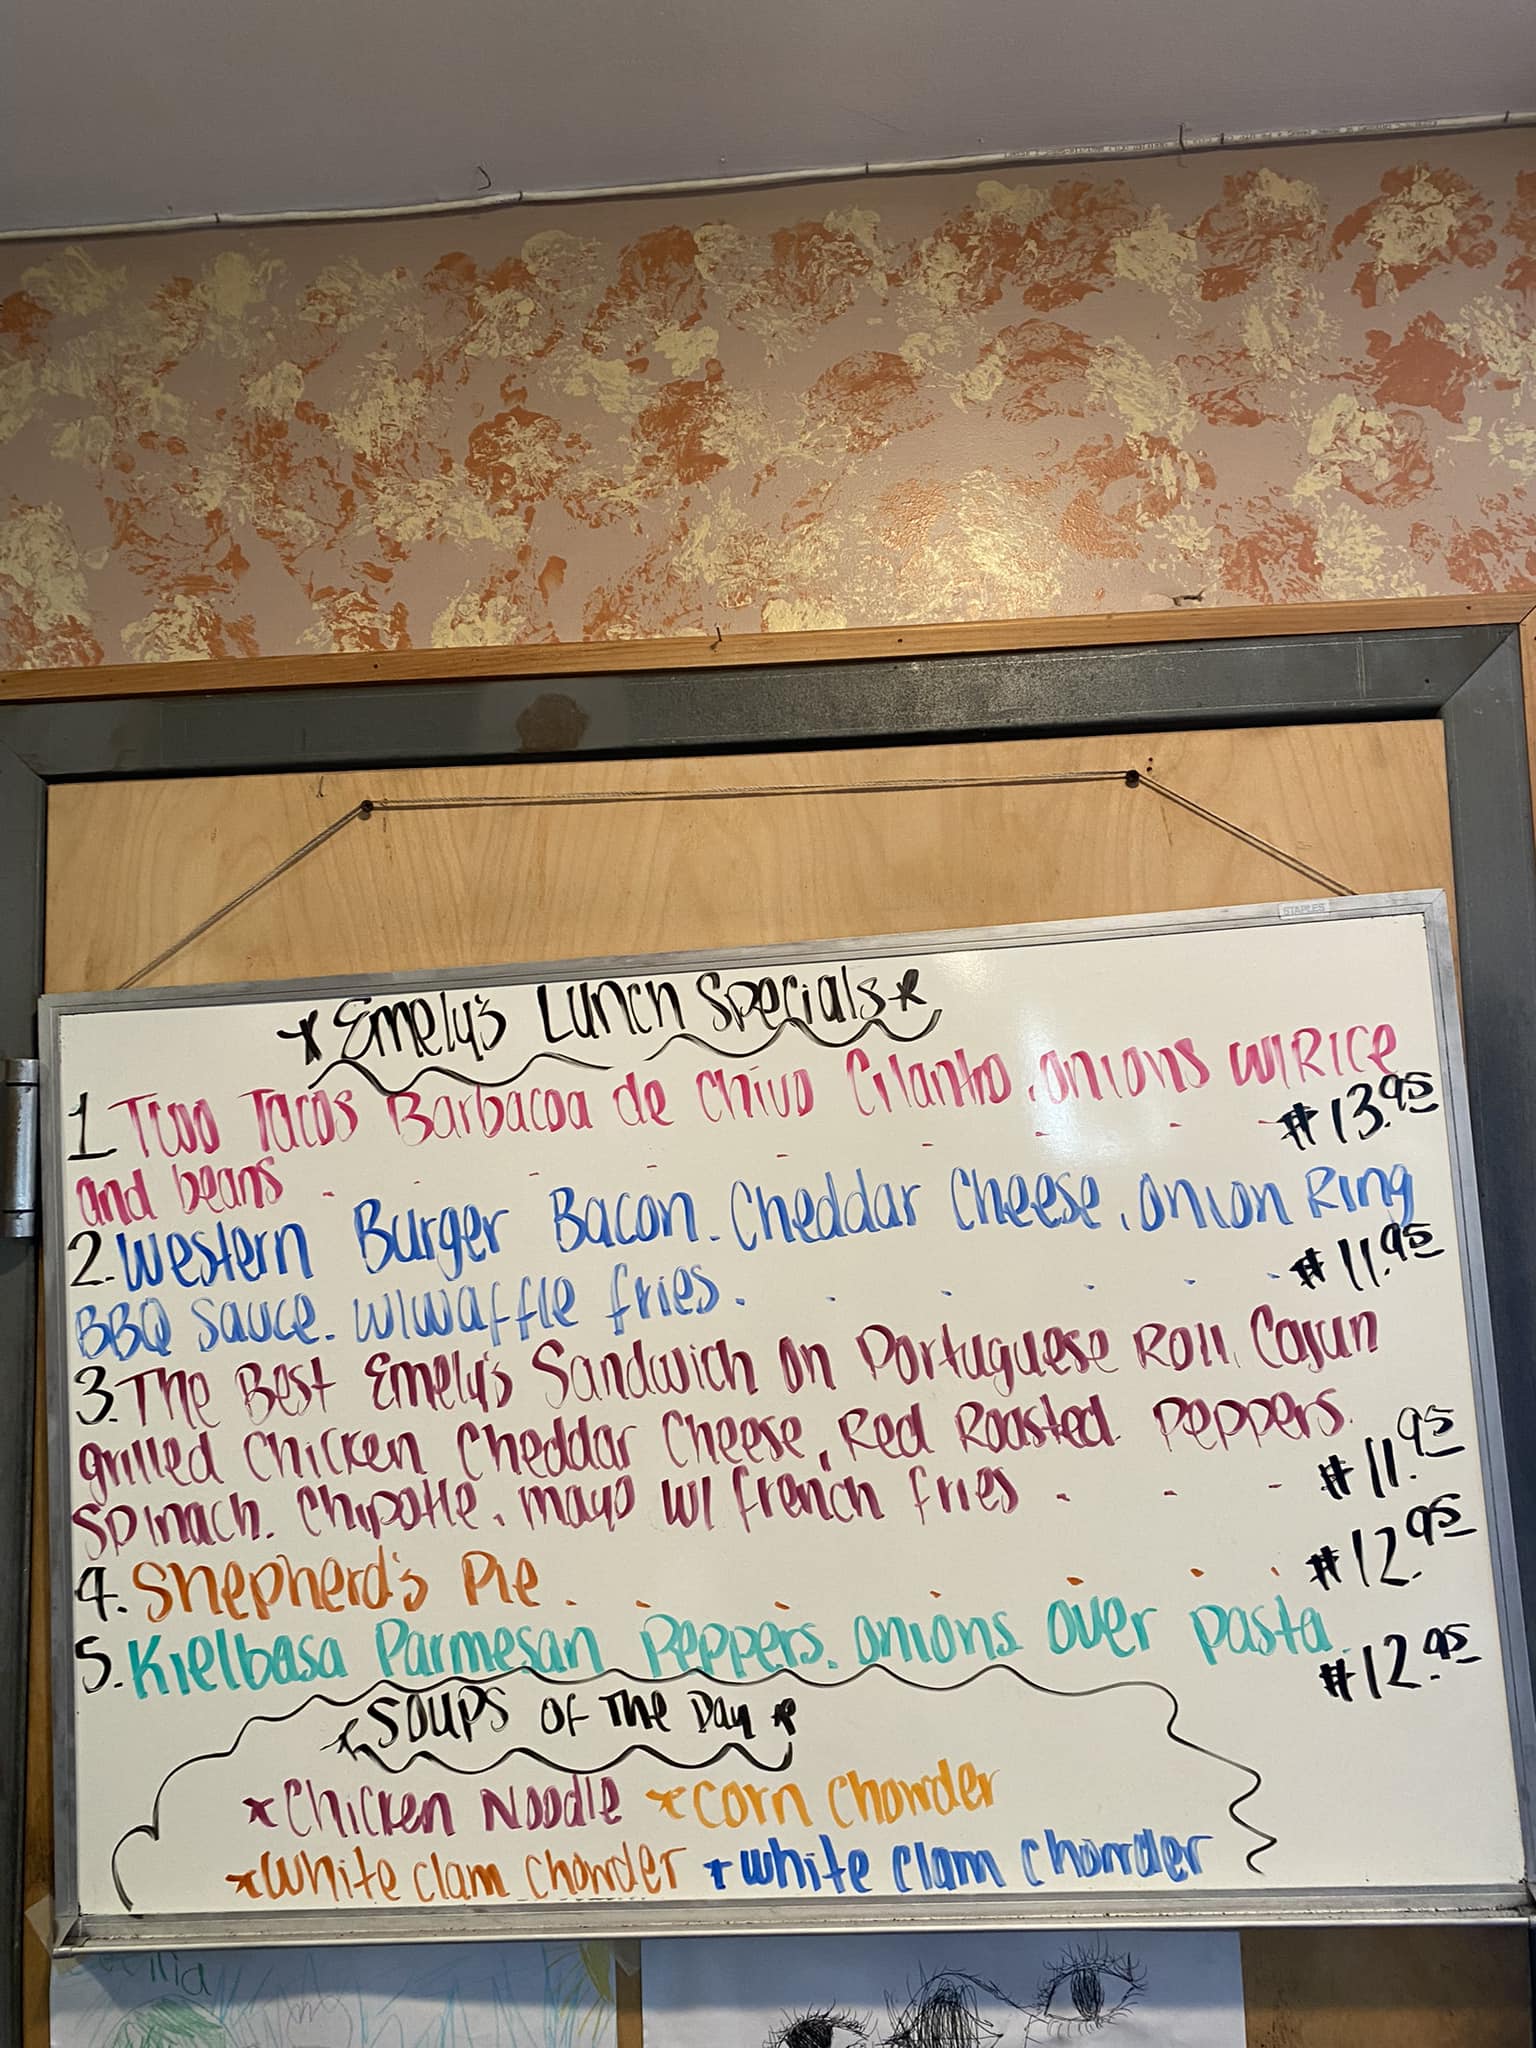 STAPLES
*Emely's Lunch Specials*
1 Two Tacos Barbacoa de Chivo Cilantro, onions w/Rice
and beans . - - - - - - - $13.95
2. Western Burger Bacon. Cheddar Cheese, onion Ring
BBQ Sauce. w/waffle fries. . . . . . $11.95
3. The Best Emely's Sandwich on Portuguese Roll, Cajun
grilled Chicken Cheddar Cheese, Red Roasted Peppers.
Spinach. Chipotle. mayo w/ french fries . - - $11.95
4. Shepherd's Pie . . . . . . . $12.95
5. Kielbasa Parmesan Peppers. onions over pasta.
$12.95
*Soups of The Day*
*Chicken Noodle *Corn Chowder
*White clam chowder *white clam chowder
Cecilia